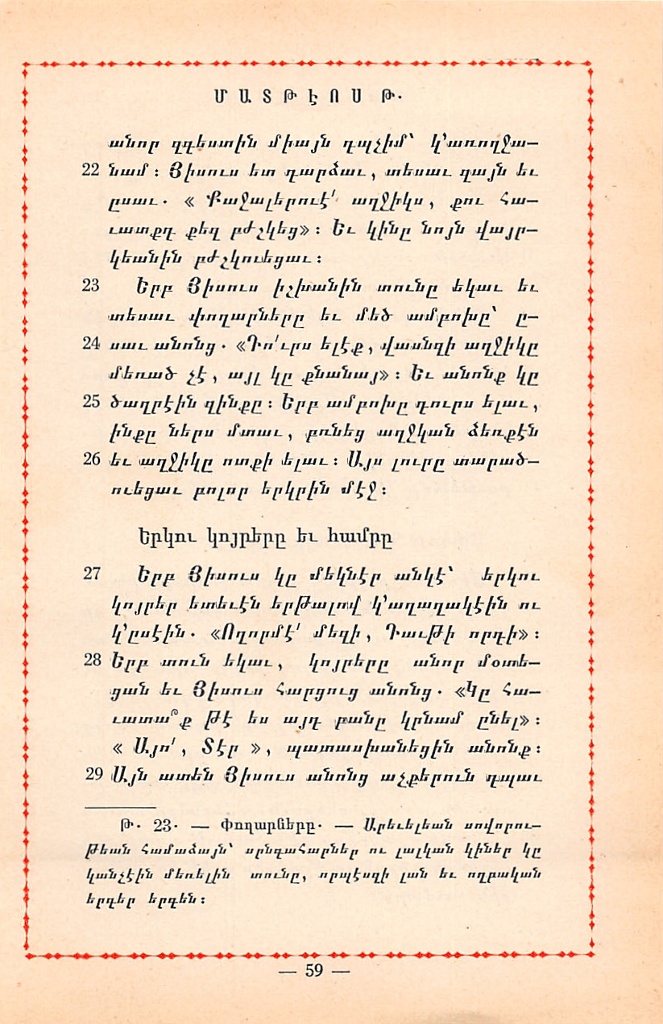 ՄԱՏԹԷՈՍ Թ.
անոր զգեստին միայն դպչիմ՝ կ՚առողջա—
22 նամ : Յիսուս ետ դարձաւ, տեսաւ զայն եւ
ըսաւ. « Քաջալերուէ՛ աղջիկս, քու հա—
ւատքդ քեզ բժշկեց» : Եւ կինը նոյն վայր—
կեանին բժշկուեցաւ :
23 Երբ Յիսուս իշխանին տունը եկաւ եւ
տեսաւ փողարները եւ մեծ ամբոխը՝ ը—
24 սաւ անոնց. «Դո՛ւրս ելէք, վասնզի աղջիկը
մեռած չէ, այլ կը քնանայ» : Եւ անոնք կը
25 ծաղրէին զինքը : Երբ ամբոխը դուրս ելաւ,
ինքը ներս մտաւ, բռնեց աղջկան ձեռքէն
26 եւ աղջիկը ոտքի ելաւ : Այս լուրը տարած—
ուեցաւ բոլոր երկրին մէջ :
Երկու կոյրերը եւ համրը
27 Երբ Յիսուս կը մեկնէր անկէ՝ երկու
կոյրեր ետեւէն երթալով կ՚աղաղակէին ու
կ՚ըսէին. «Ողորմէ՛ մեզի, Դաւթի որդի» :
28 Երբ տուն եկաւ, կոյրերը անոր մօտե—
ցան եւ Յիսուս հարցուց անոնց. «Կը հա—
ւատա՞ք թէ ես այդ բանը կրնամ ընել» :
« Այո՛, Տէր », պատասխանեցին անոնք :
29 Այն ատեն Յիսուս անոնց աչքերուն դպաւ
Թ. 23. — Փողարները. — Արեւելեան սովորու—
թեան համաձայն՝ սրնգահարներ ու լալկան կիներ կը
կանչէին մեռելին տունը, որպէսզի լան եւ ողբական
երգեր երգեն :
— 59 —